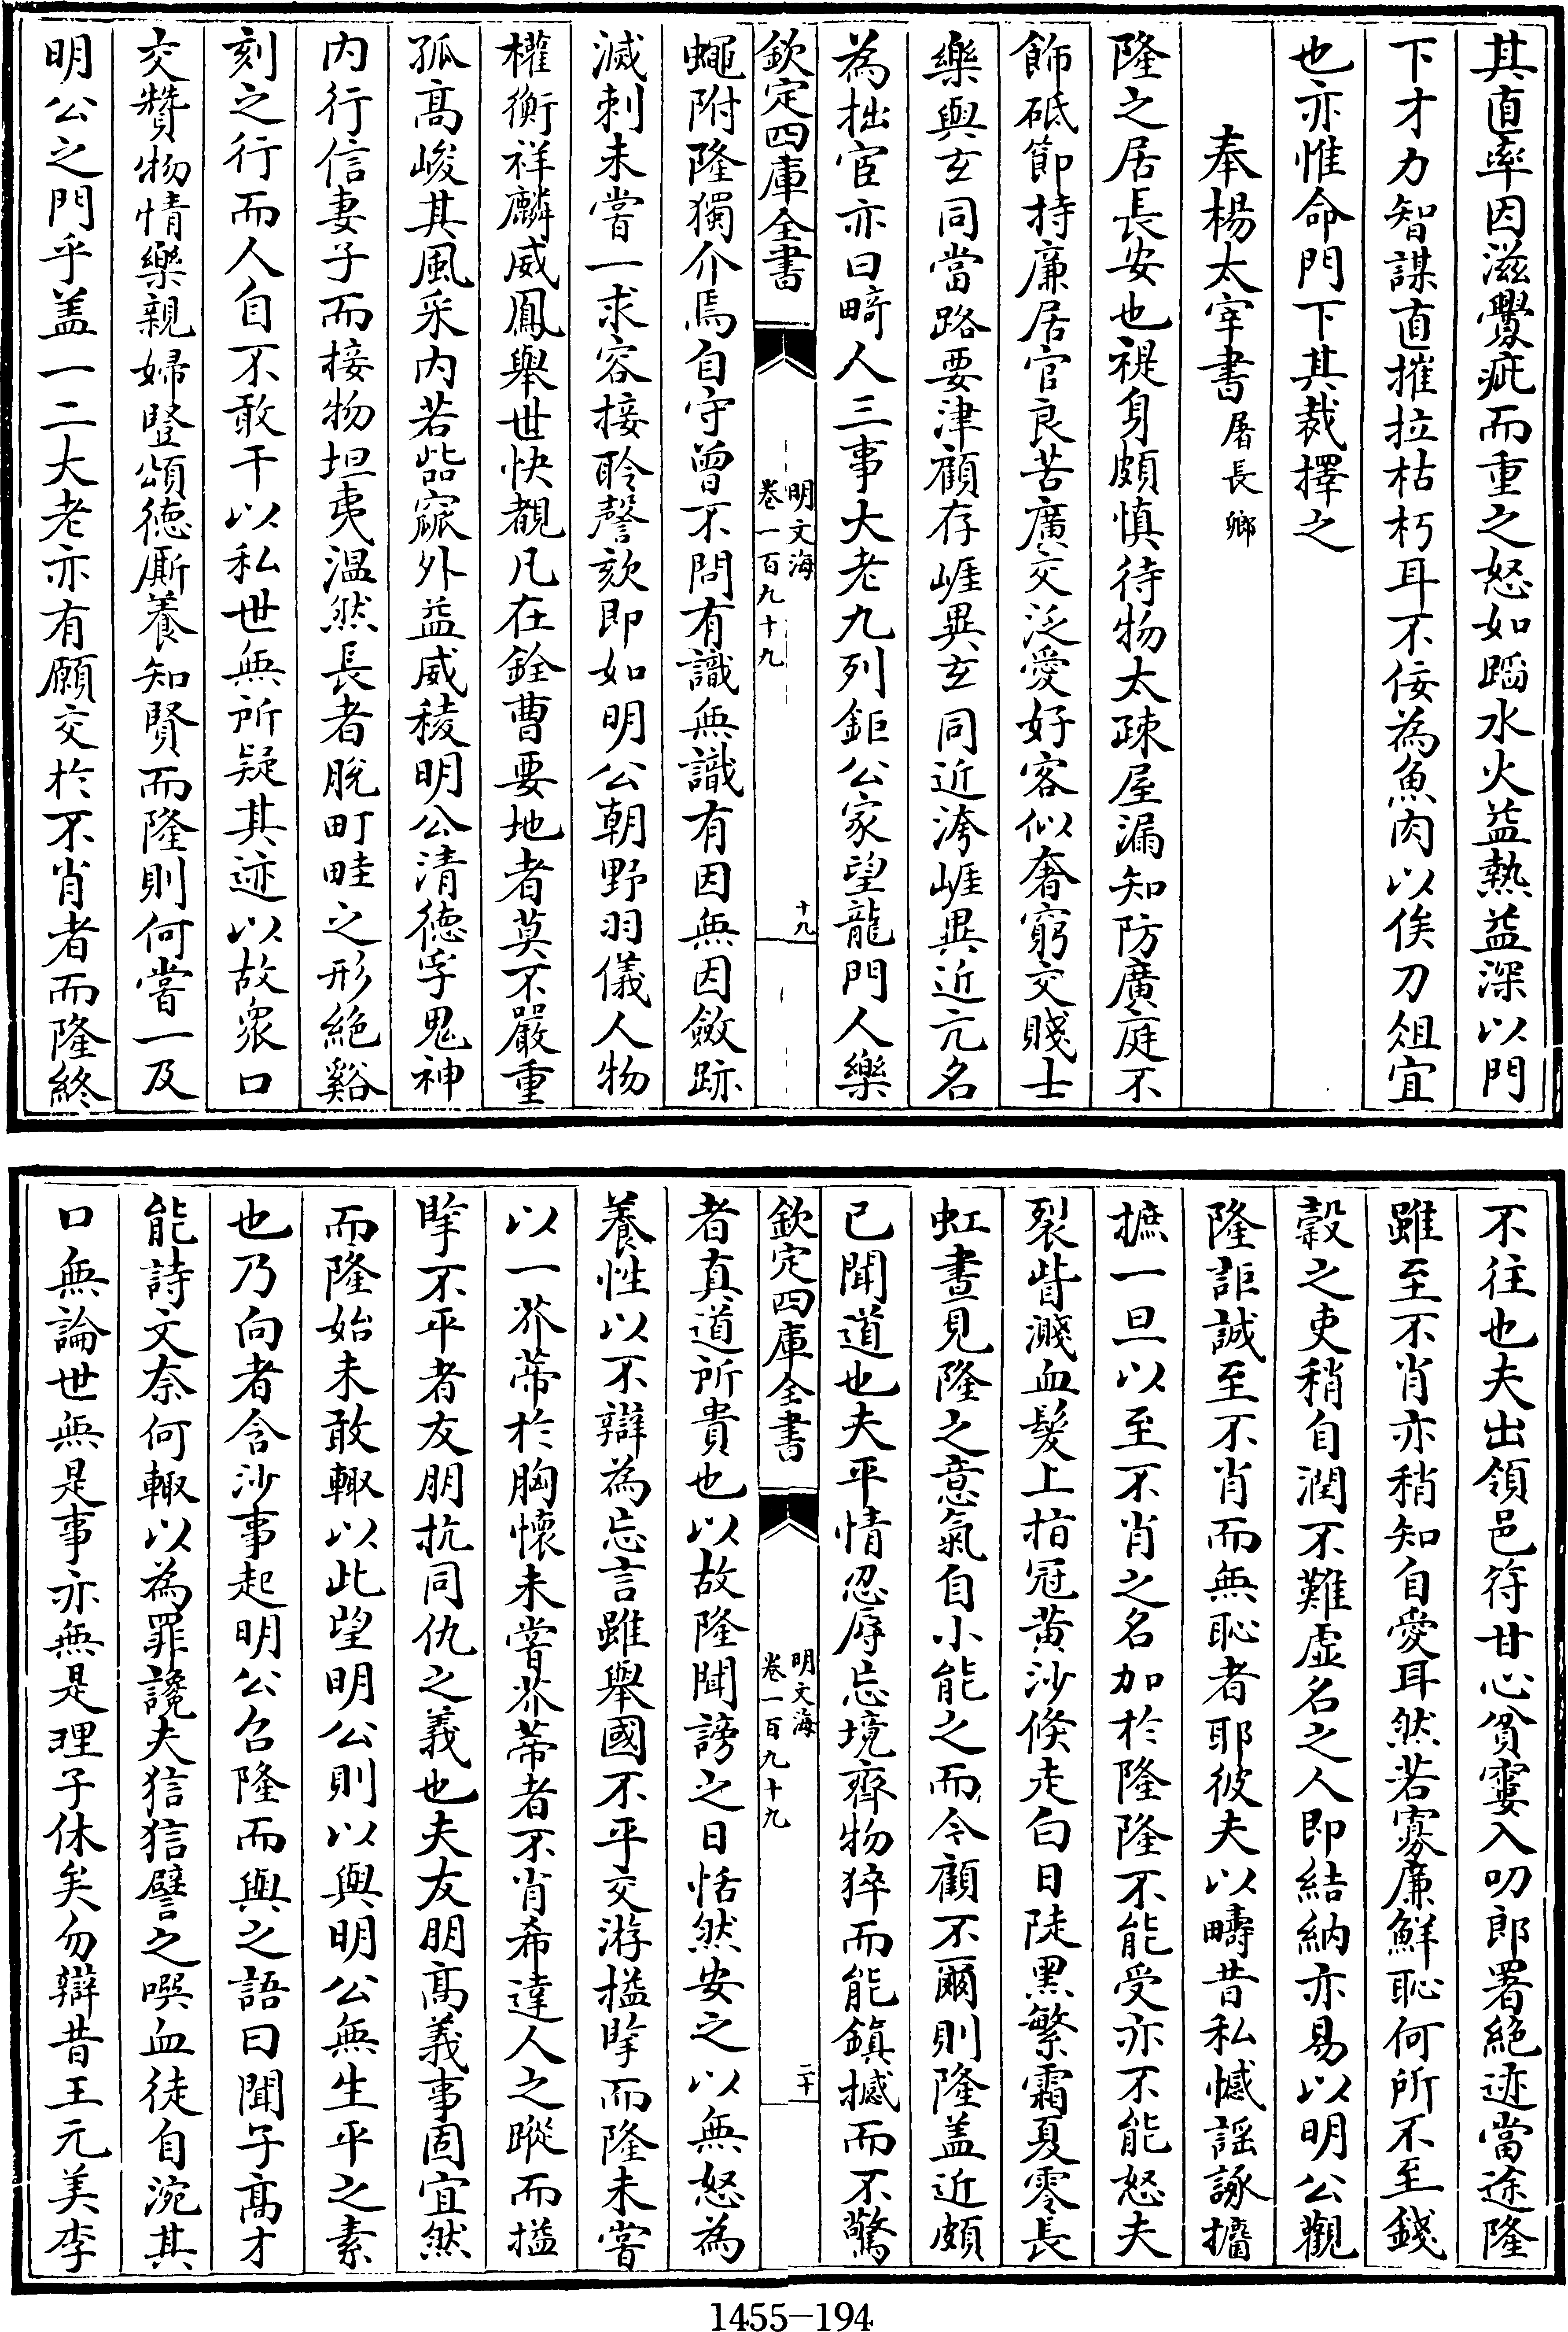 其直率因滋釁疵而重之怒如蹈水火益熱益深以門
下才力智謀直摧拉枯朽耳不佞為魚肉以俟刀俎宜
也亦惟命門下其裁擇之
奉楊太宰書屠長卿
隆之居長安也禔身頗慎待物太疎屋漏知防廣庭不
飾砥節持廉居官良苦廣交泛愛好客似奢窮交賤士
樂與玄同當路要津顧存崕異玄同近洿崕異近亢名
為拙宦亦曰畸人三事大老九列鉅公家望龍門人樂
欽定四庫全書
明文海
卷一百九十九
十九
蠅附隆獨介焉自守曾不問有識無識有因無因斂跡
滅刺未嘗一求容接聆謦欬即如明公朝野羽儀人物
權衡祥麟威鳳舉世快覩凡在銓曹要地者莫不嚴重
孤高峻其風采内若呰窳外益威稜明公清德孚鬼神
内行信妻子而接物坦夷温然長者脫町畦之形絶谿
刻之行而人自不敢干以私世無所疑其迹以故衆口
交贊物情樂親婦豎頌德厮養知賢而隆則何嘗一及
明公之門乎盖一二大老亦有願交於不肖者而隆終
不往也夫出領邑符甘心貧窶入叨郎署絶迹當途隆
雖至不肖亦稍知自愛耳然若寡廉鮮恥何所不至錢
穀之吏稍自潤不難虚名之人即結納亦易以明公觀
隆詎誠至不肖而無恥者耶彼夫以疇昔私憾謡諑攟
摭一旦以至不肖之名加於隆隆不能受亦不能怒夫
裂眥濺血髮上指冠黄沙倐走白日陡黑繁霜夏零長
虹晝見隆之意氣自小能之而今顧不爾則隆盖近頗
已聞道也夫平情忍辱忘境齊物猝而能鎮撼而不驚
欽定四庫全書
明文海
卷一百九十九
二十
者真道所貴也以故隆聞謗之日恬然安之以無怒為
養性以不辯為忘言雖舉國不平交游搤睅而隆未嘗
以一芥蔕於胸懷未嘗芥蔕者不肖希達人之蹤而搤
睅不平者友朋抗同仇之義也夫友朋高義事固宜然
而隆始未敢輙以此望明公則以與明公無生平之素
也乃向者含沙事起明公召隆而與之語曰聞子高才
能詩文奈何輙以為罪讒夫狺狺譬之噀血徒自涴其
口無論世無是事亦無是理子休矣勿辯昔王元美李
1455-194